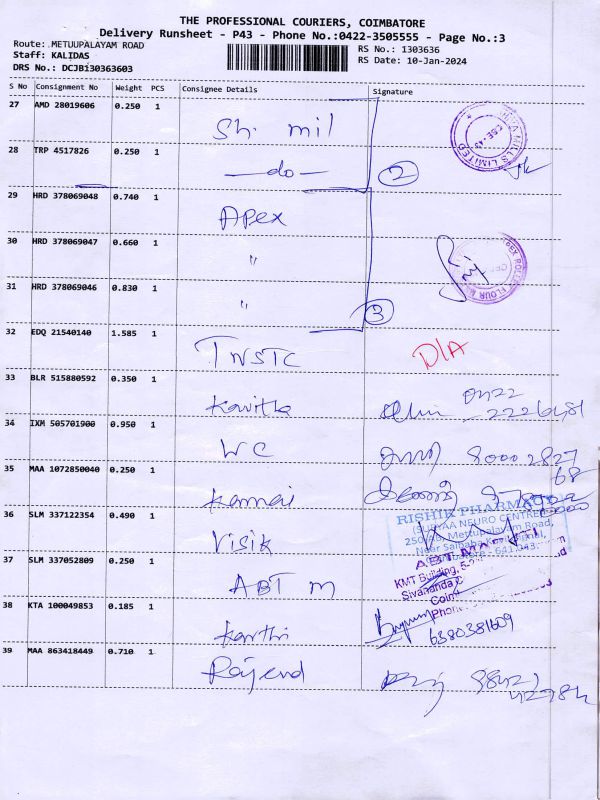 THE PROFESSIONAL COURIERS, COIMBATORE
Delivery Runsheet - P43 - Phone No.:0422-3505555 - Page No.:3
Route: METUUPALAYAM ROAD
Staff: KALIDAS
DRS No.: DCJB130363603
RS No.: 1303636
RS Date: 10-Jan-2024
S No Consignment No Weight PCS Consignee Details Signature
27 AMD 28019606 0.250 1 Sh. mil
28 TRP 4517826 0.250 1 —do— 2
29 HRD 378069048 0.740 1 Apex
30 HRD 378069047 0.660 1 "
31 HRD 378069046 0.830 1 " 3
32 EDQ 21540140 1.585 1 TNSTC D/A
33 BLR 515880592 0.350 1 Kavitha 0422
34 IXM 505701900 0.950 1 WC 80002827
68
35 MAA 1072850040 0.250 1
36 SLM 337122354 0.490 1 Visik
RISHIK PHARMACY
(SURYAA NEURO CENTRE)
Mettupalayam Road,
Near Saibaba
641 043.
37 SLM 337052809 0.250 1 ABT m
KMT Building,
Sivananda
Phone
38 KTA 100049853 0.185 1 Karthi 6380381609
39 MAA 863418449 0.710 1 Rajend 98427